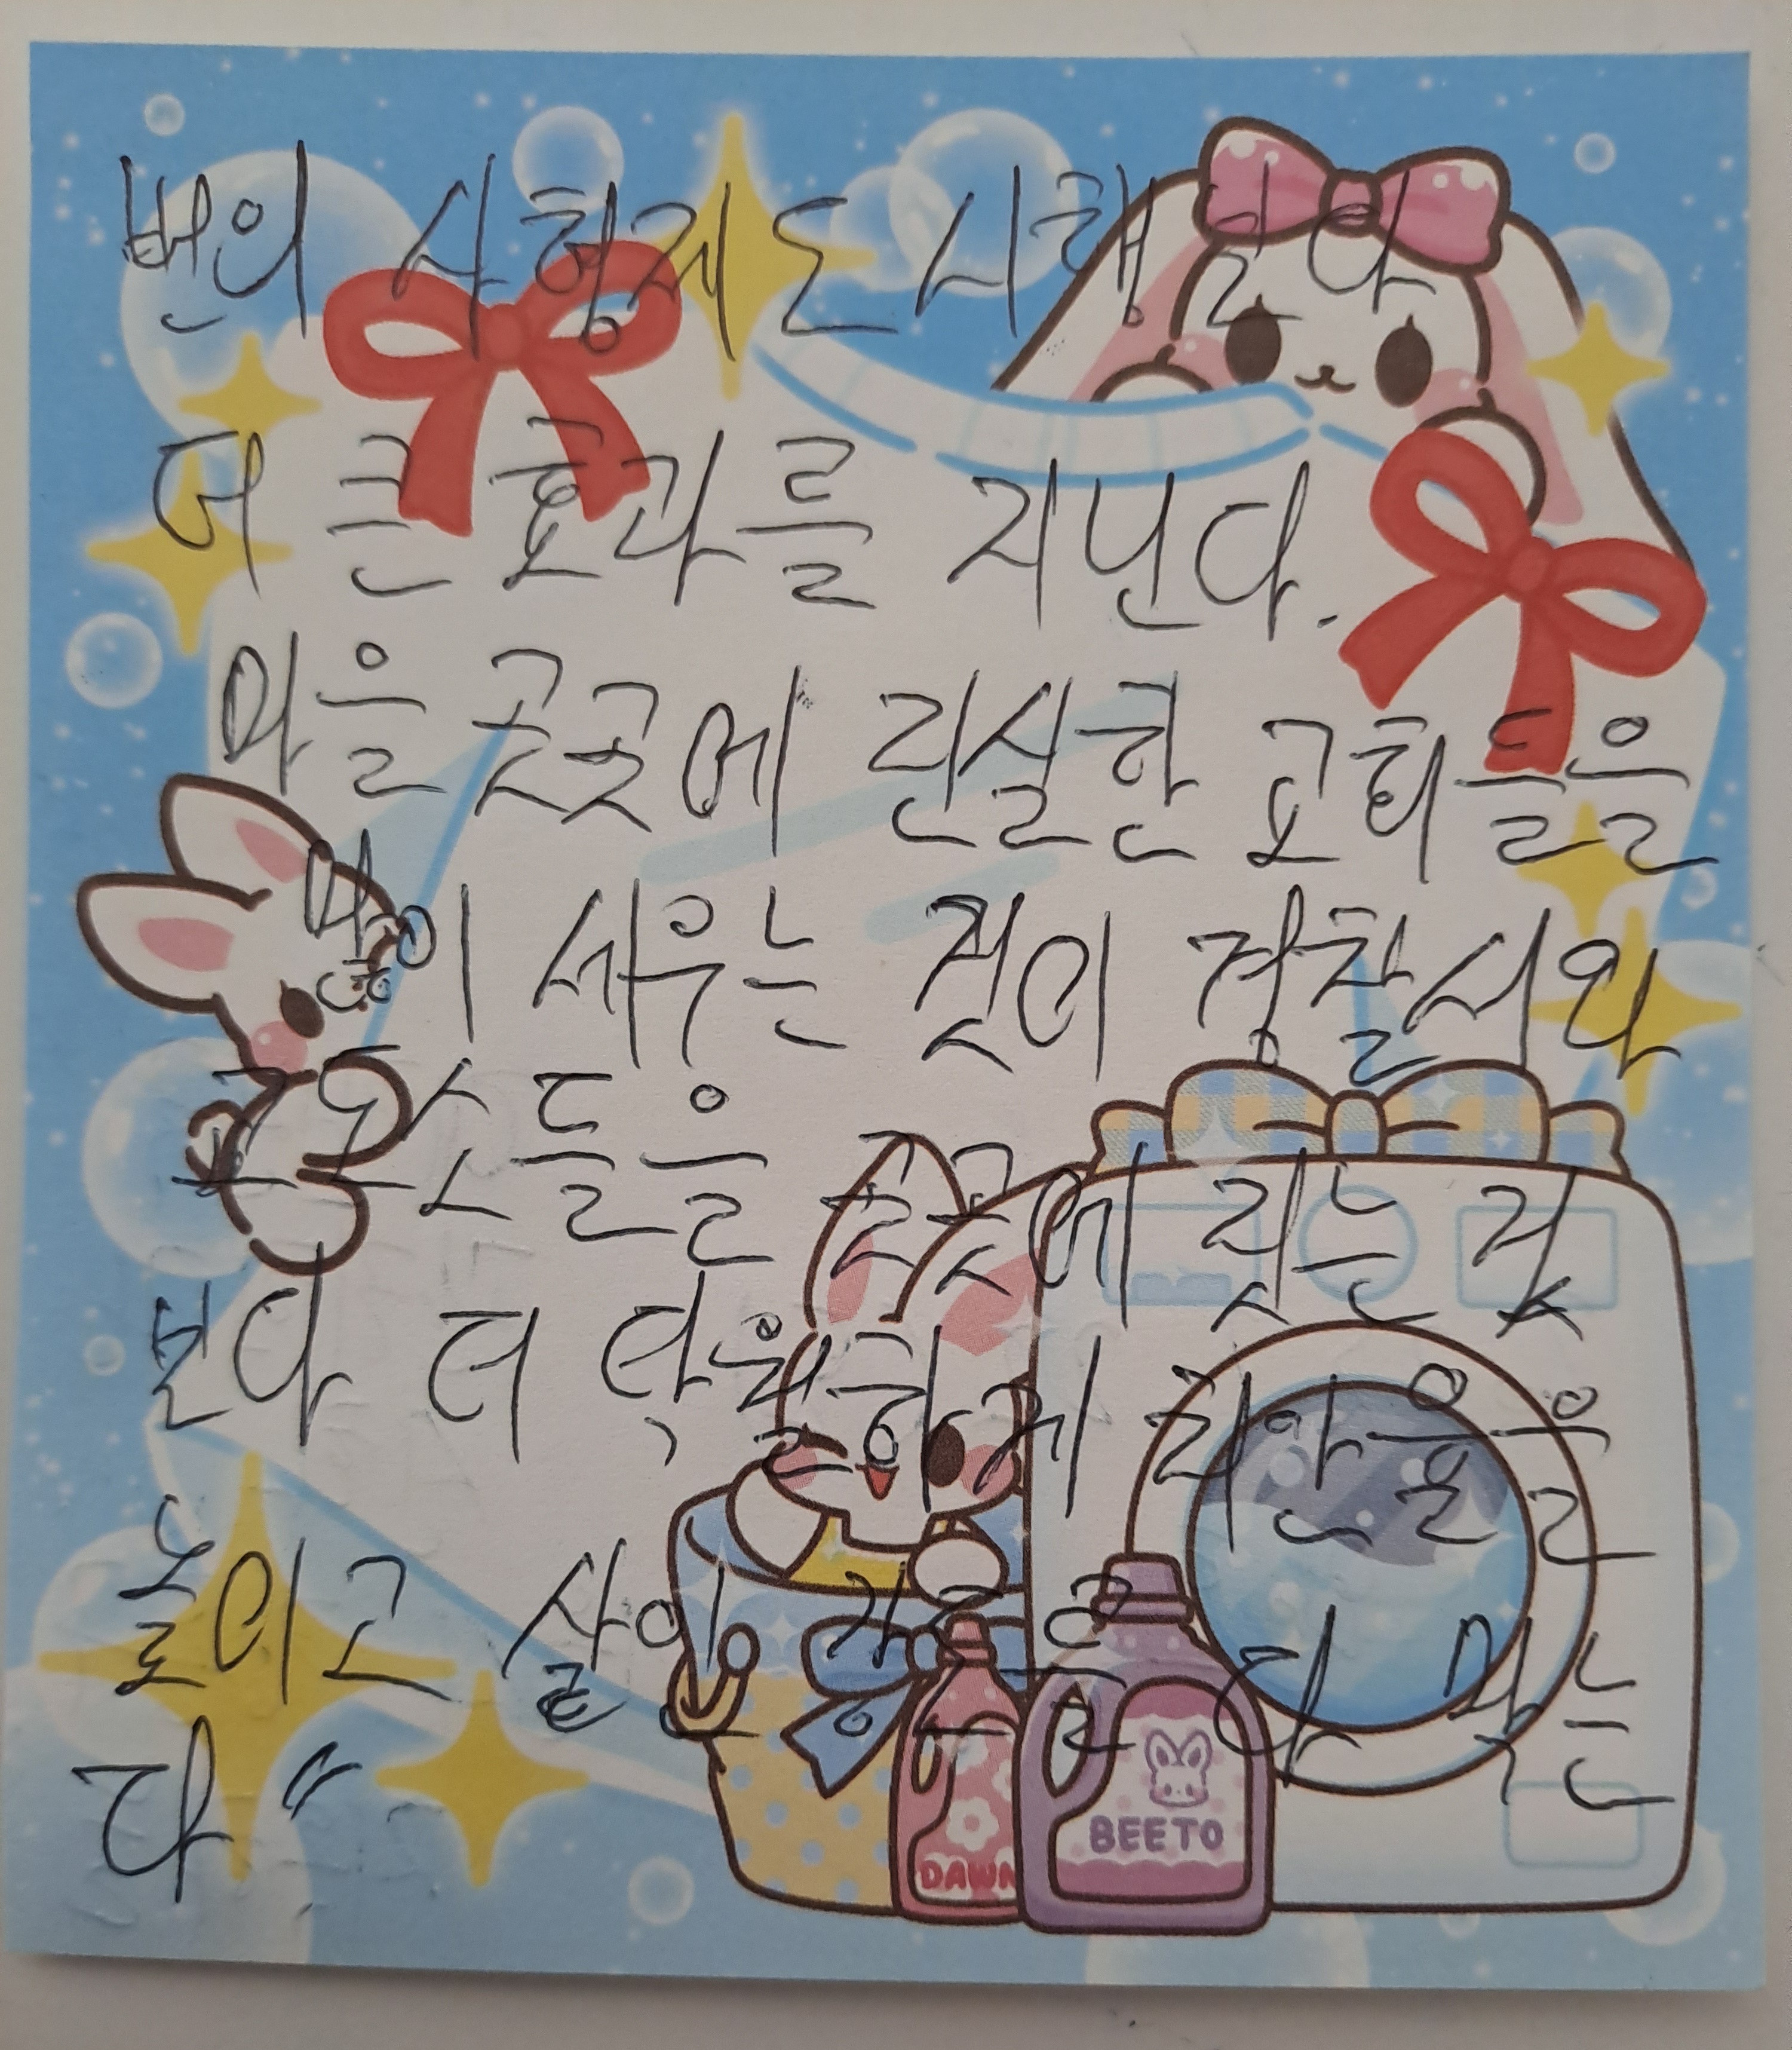 번의 사형제도 시행보다
더 큰 효과를 지닌다.
마을 곳곳에 진실한 교회들을
많이 세우는 것이 경찰서와
교도소들을 곳곳에 짓는 것
보다 더 탁월하게 치안율을
높이고 살인 기운을 다 멎는
다"
BEETO
DAWN